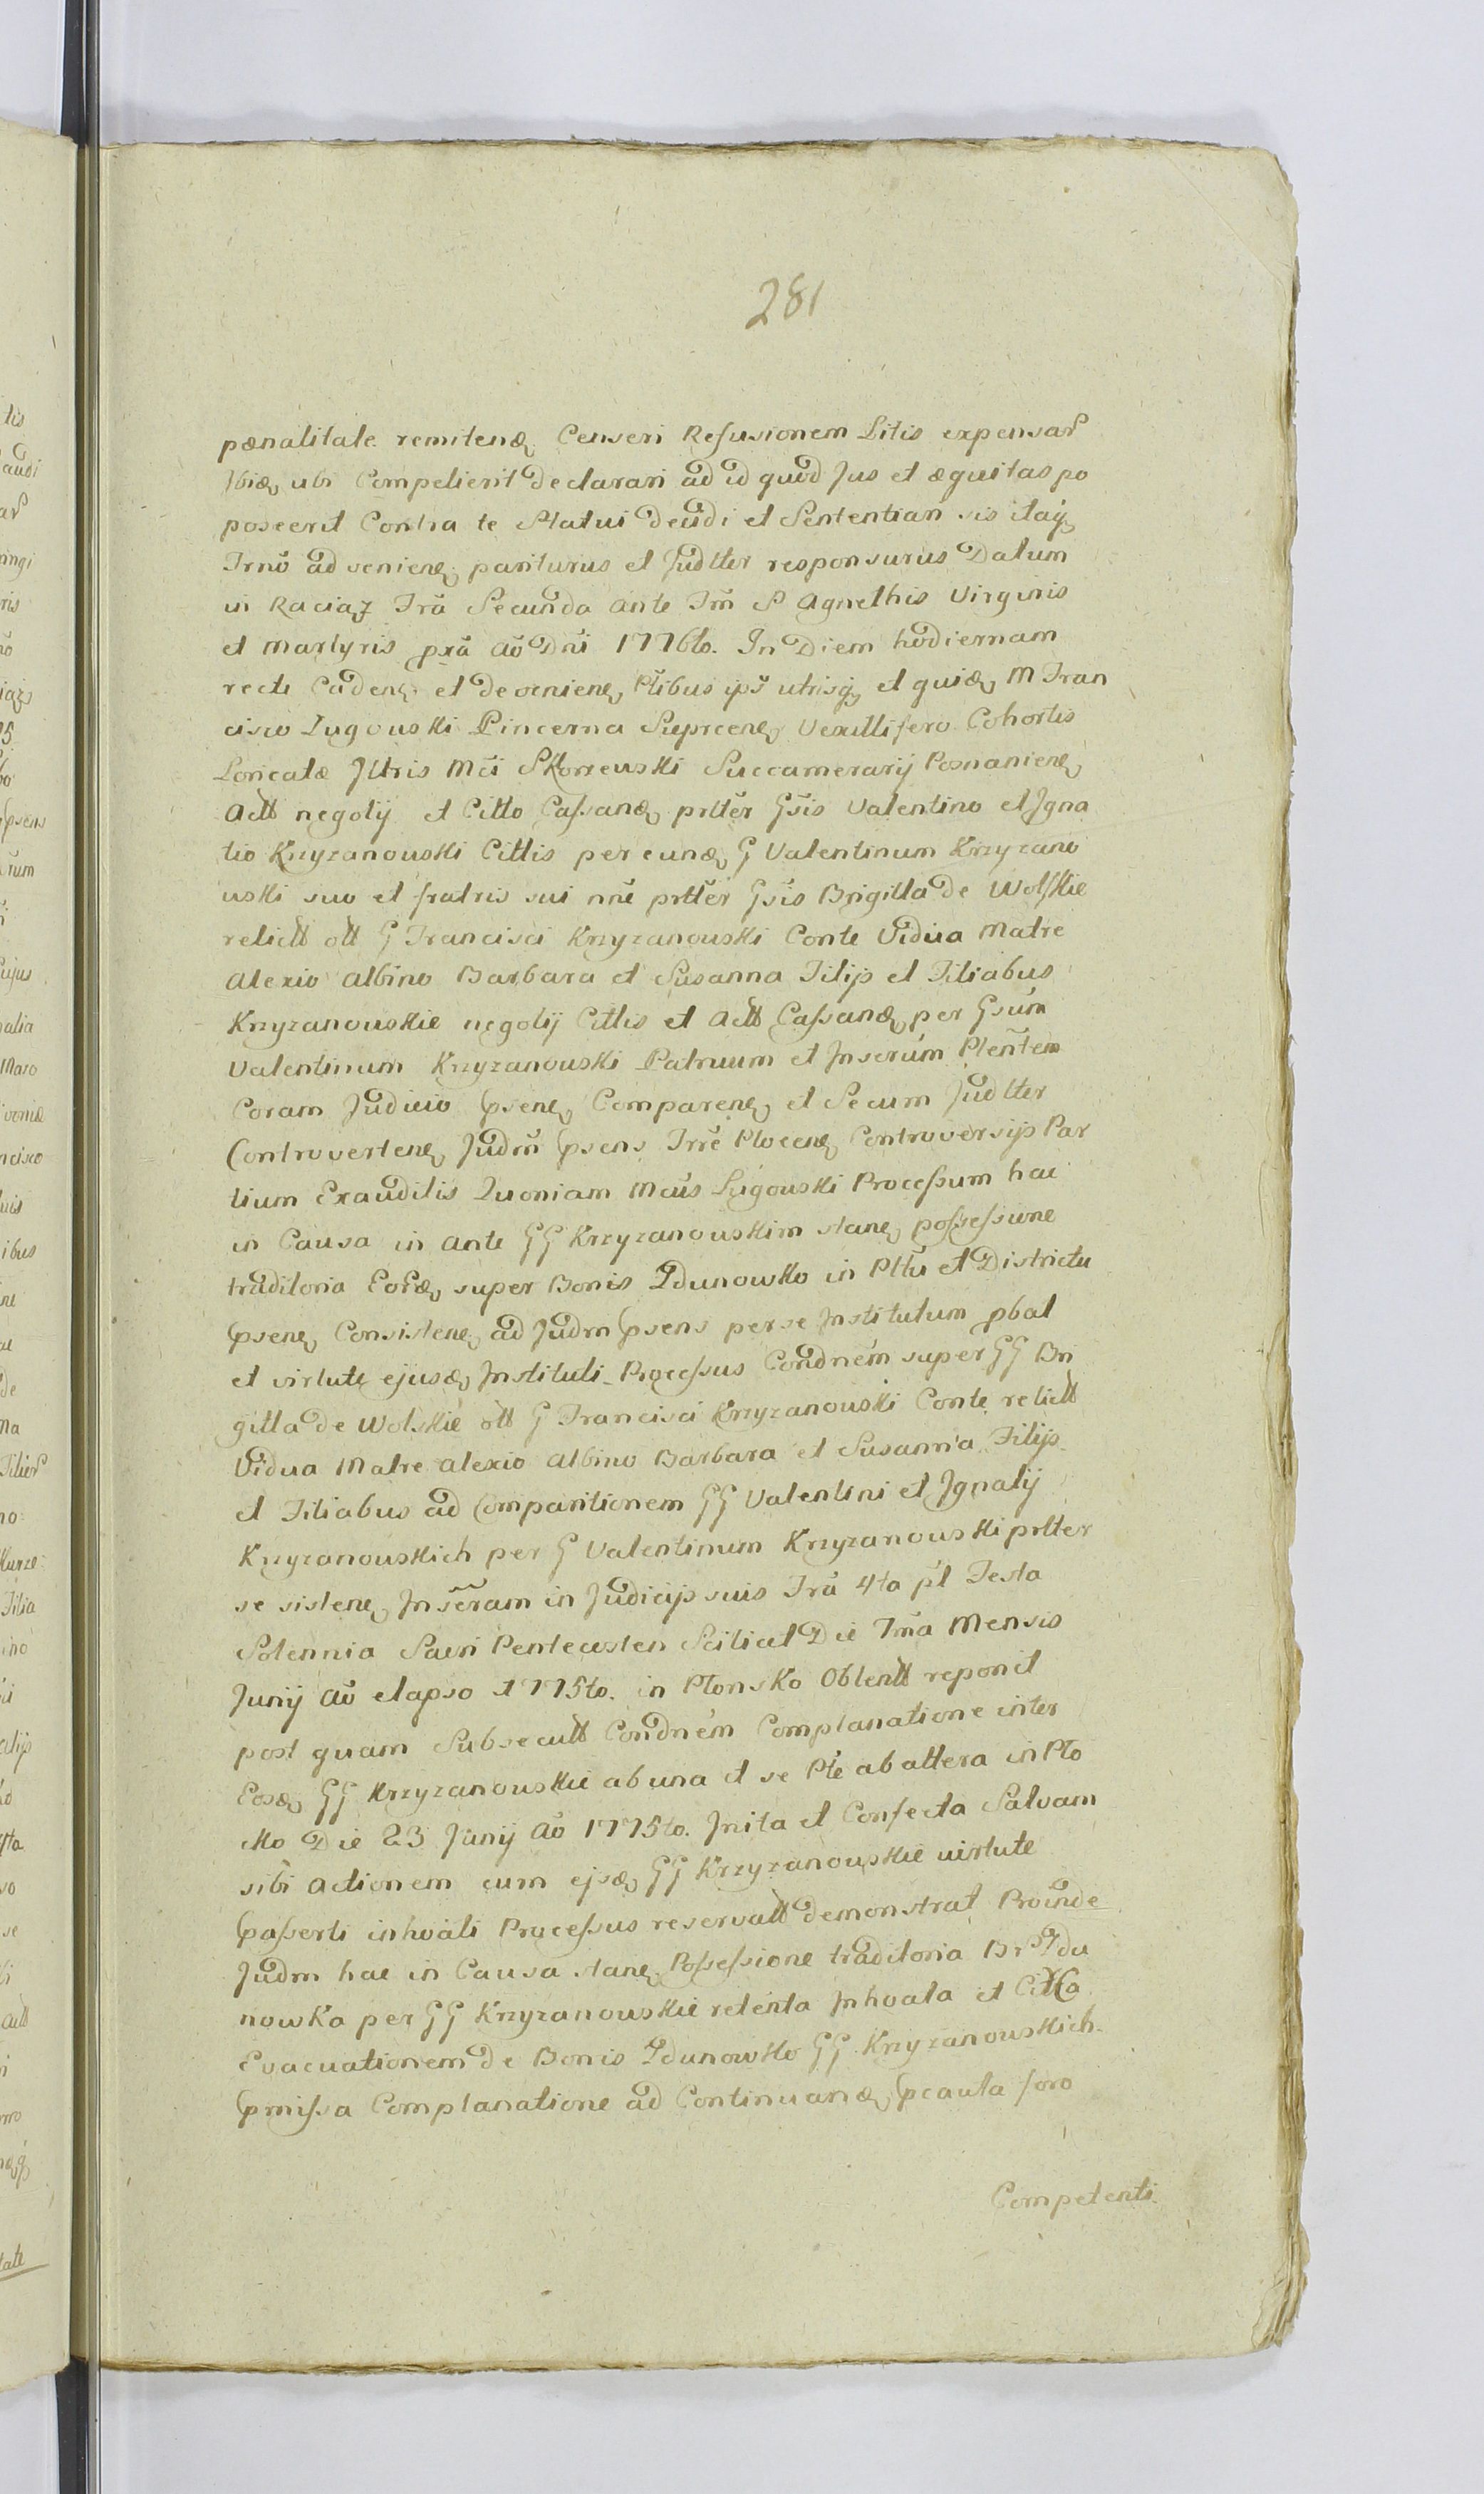 281
pœnalitate remitenđ Censeri Refusionem Litis expensar
Ibiđ ubi Competierit declarari ad id quod Jus et æquitas po
poscerit Contra te Statui decidi et Sententiari sis itaq
Trno adveniene pariturus et Judtter responsurus Datum
in Raciąz Fra Secunda ante Fm S Agnethis Virginis
et Martyris pxa Ao Dni 1776to. In Diem hodiernam
recte Cadene et deveniene Ptibus ips utrisq et quiđ M Fran
cisco Lugouski Pincerna Vexillifero Cohortis
Loricatæ Illris Mci Skorreuski Succamerarij Posnaniene
Actt negotij et Citto Cassanđ prtter Gsis Valentino et Igna
tio Krzyzanouski Cittis per eunđ G Valentinum Krzyzano
uski suo et fratris sui nne prtter Gsis Brigitta de Wolskie
relictt ott G Francisci Krzyzanouski Conte Vidua Matre
Alexio Albino Barbara et Susanna Filijs et Filiabus
Krzyzanouskie negotij Cittis et Actt Cassanđ per Gsum
Valentinum Krzyzanouski Patruum et Inserum Plentem
Coram Judicio psene Comparene et Secum Judtter
Controvertene Judm psens Trre Plocene Controversijs Par
tium Exauditis Quoniam Mcus Lugouski Processum hac
in Causa in ante GG Krzyzanouskim stane possessione
traditoria Eorđ super Bonis Zdunowko in Pttu et Districtu
psene Consistene ad Judm psens per se Institutum pbat
et virtute ejusđ Instituti Processus Condnem super GG Bri
gitta de Wolskie ott G Francisci Krzyzanouski Conte relictt
Vidua Matre Alexio Albino Barbara et Susanna Filijs
et Filiabus ad Comparitionem GG Valentini et Ignatij
Krzyzanouskich per G Valentinum Krzyzanouski prtter
se sistene Inseram in Judicijs suis Fra 4ta pt Festa
Solennia Sacri Pentecosten Scilicet Die 7ma Mensis
Junij Ao elapso 1775to. in Plonsko Obtentt reponit
post quam Subsecutt Condnem Complanatione inter
Eosđ GG Krzyzanouskie ab una et se Pte ab altera in Plo
cko Die 23 Junij Ao 1775to. Inita et Confecta Salvam
sibi Actionem cum ejsđ GG Krzyzanouskie virtute
passerti inhoati Processus reservatt demonstrat Proinde
Judm hac in Causa stane Possessione traditoria Br Zdu
nowka per GG Krzyzanouskie retenta Inhoata et Citta
Evacuationem de Bonis Zdunowko GG Krzyzanouskich
pmissa Complanatione ad Continuanđ pcauta foro
Competenti